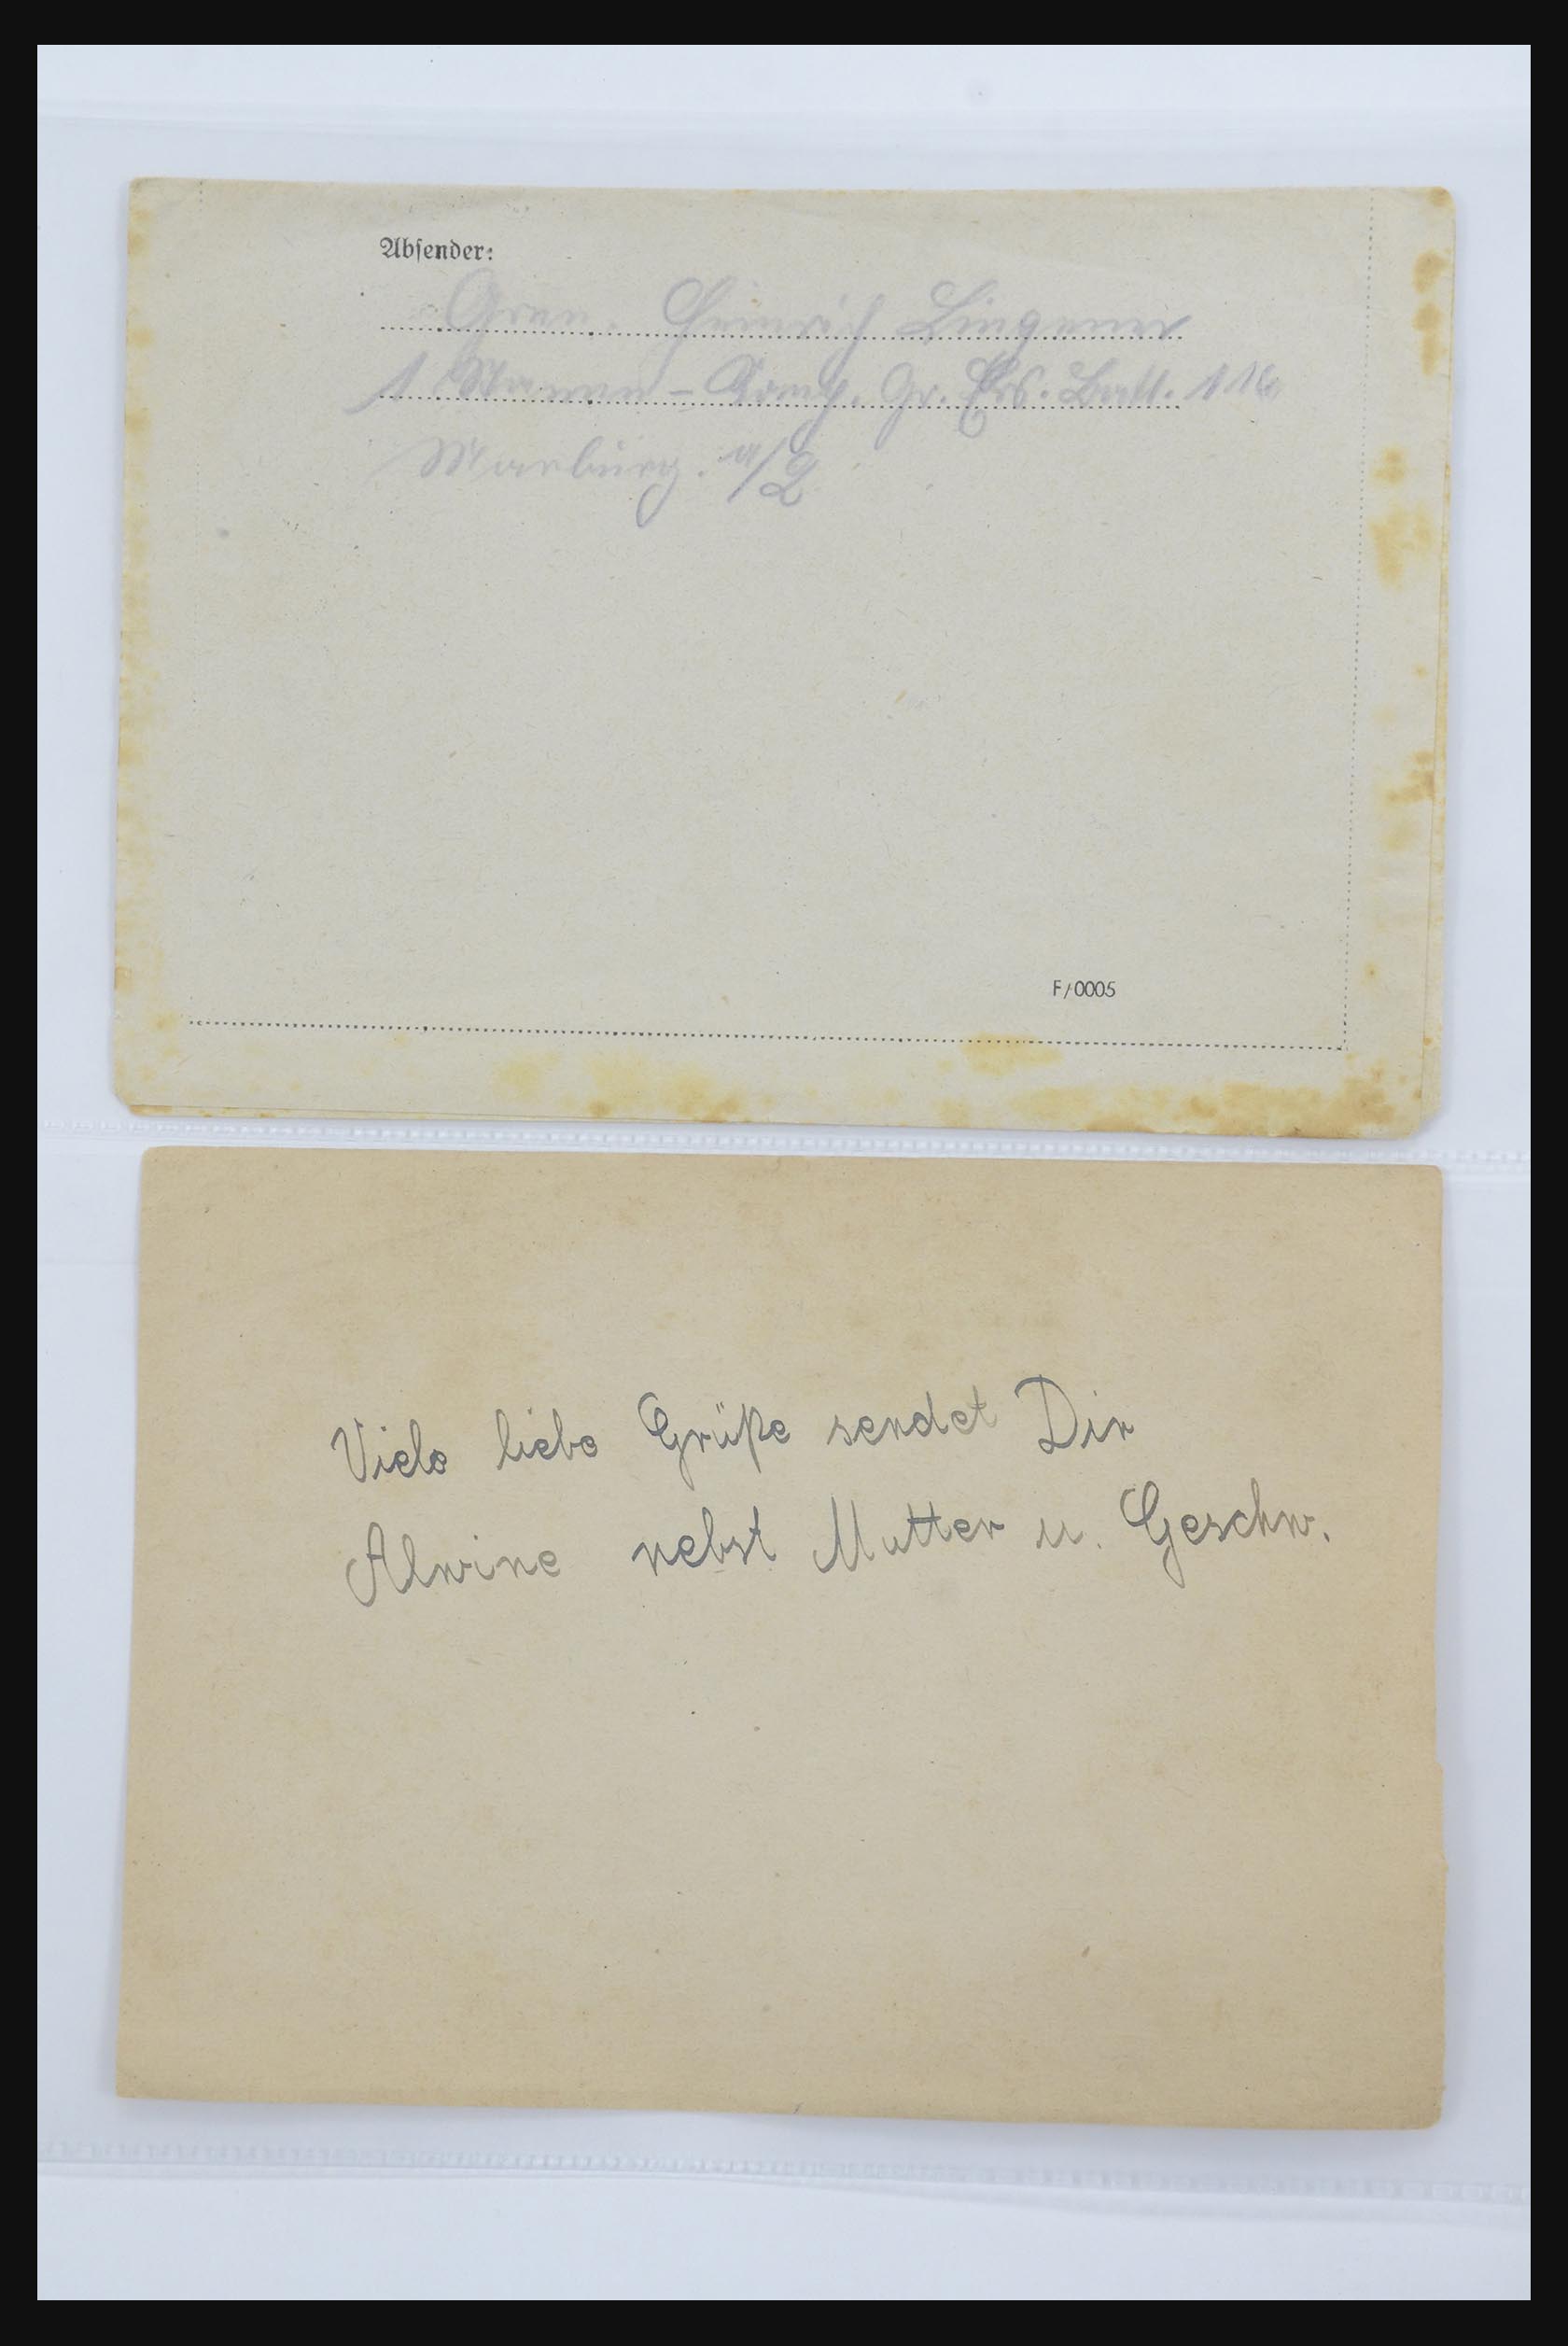 Absender:
Gren. Heinrich Lingemer
1. Stamm-Komp. Gr. Ers. Batl. 116
Marburg. a/L
F/0005
Viele liebe Grüße sendet Dir
Alwine nebst Mutter u. Geschw.